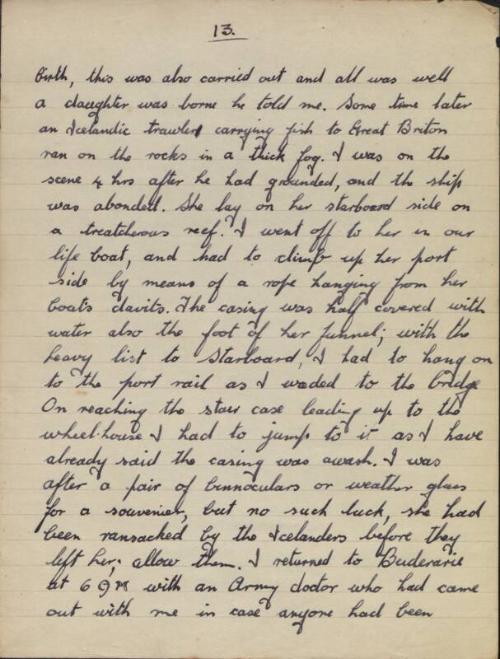 13.
birth, this was also carried out and all was well
a daughter was borne he told me. Some time later
an Icelandic trawler carrying fish to Great Briton
ran on the rocks in a thick fog. I was on the
scene 4 hrs after he had grounded, and the ship
was abonded. She lay on her starboard side on
a treatcherous reef. I went off to her in our
life boat, and had to climb up her port
side by means of a rope hanging from her
boats davits. The casing was half covered with
water also the foot of her funnel; with the
heavy list to starboard, I had to hang on
to the port rail as I waded to the bridge
On reaching the stair case leading up to the
wheel-house I had to jump to it as I have
already said the casing was awash. I was
after a pair of binnoculars or weather glass
for a souvenier, but no such luck, she had
been ransacked by the Icelanders before they
left her; allow them. I returned to Buderarie
at 6 PM with an Army doctor who had came
out with me in case anyone had been